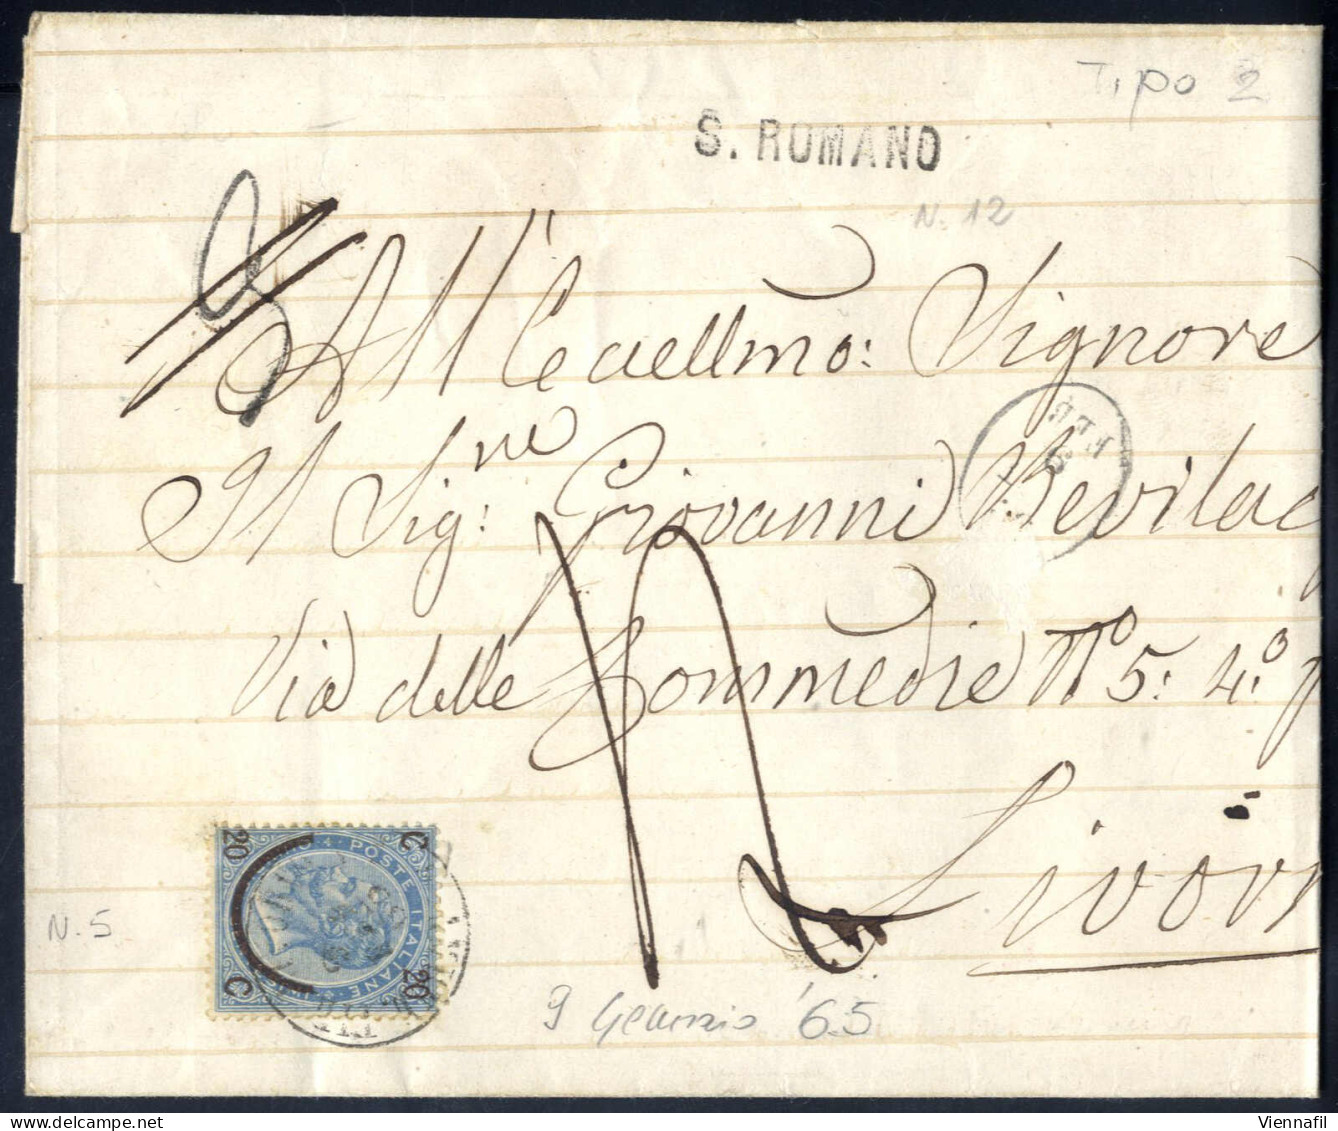 Tipo 2
S. ROMANO
N. 12
All' Eccellmo: Signore
Il Sig:re Giovanni Bevilac
Via delle Commedie No 5: 4:o p
Livor
20 C
POSTE ITALIANE
C 20
N. 5
9 Gennaio '65
Viennafil